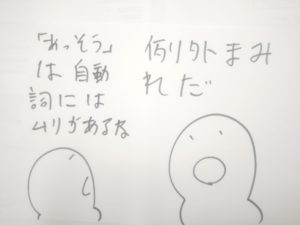 「あっそう」
は自動
詞には
ムリがあるな
例外まみ
れだ